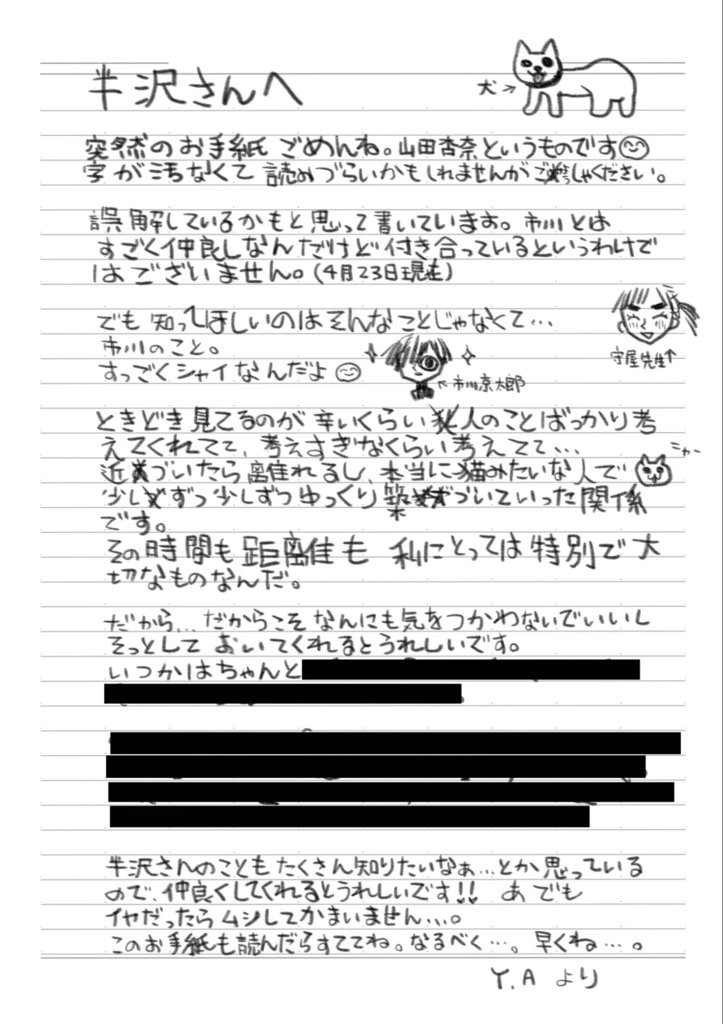 半沢さんへ
犬→
突然のお手紙ごめんね。山田杏奈というものです
字が汚なくて読みづらいかもしれませんがご容しゃください。
誤解しているかもと思って書いています。市川とは
すごく仲良しなんだけど付き合っているというわけで
はございません。(4月23日現在)
でも知ってほしいのはそんなことじゃなくて…
守屋先生↑
市川のこと。
すっごくシャイなんだよ
←市川京太郎
ときどき見てるのが辛いくらい人のことばっかり考
えてくれてて、考えすぎなくらい考えてて…
ニャー
近づいたら離れるし、本当に猫みたいな人で
少しずつ少しずつゆっくり築づいていった関係
です。
その時間も距離も私にとっては特別で大
切なものなんだ。
だから…だからこそなんにも気をつかわないでいいし
そっとしておいてくれるとうれしいです。
いつかはちゃんと
半沢さんのこともたくさん知りたいなぁ…とか思っている
ので、仲良くしてくれるとうれしいです!! あ でも
イヤだったらムシしてかまいません…。
このお手紙も読んだらすててね。なるべく…。早くね…。
Y.Aより